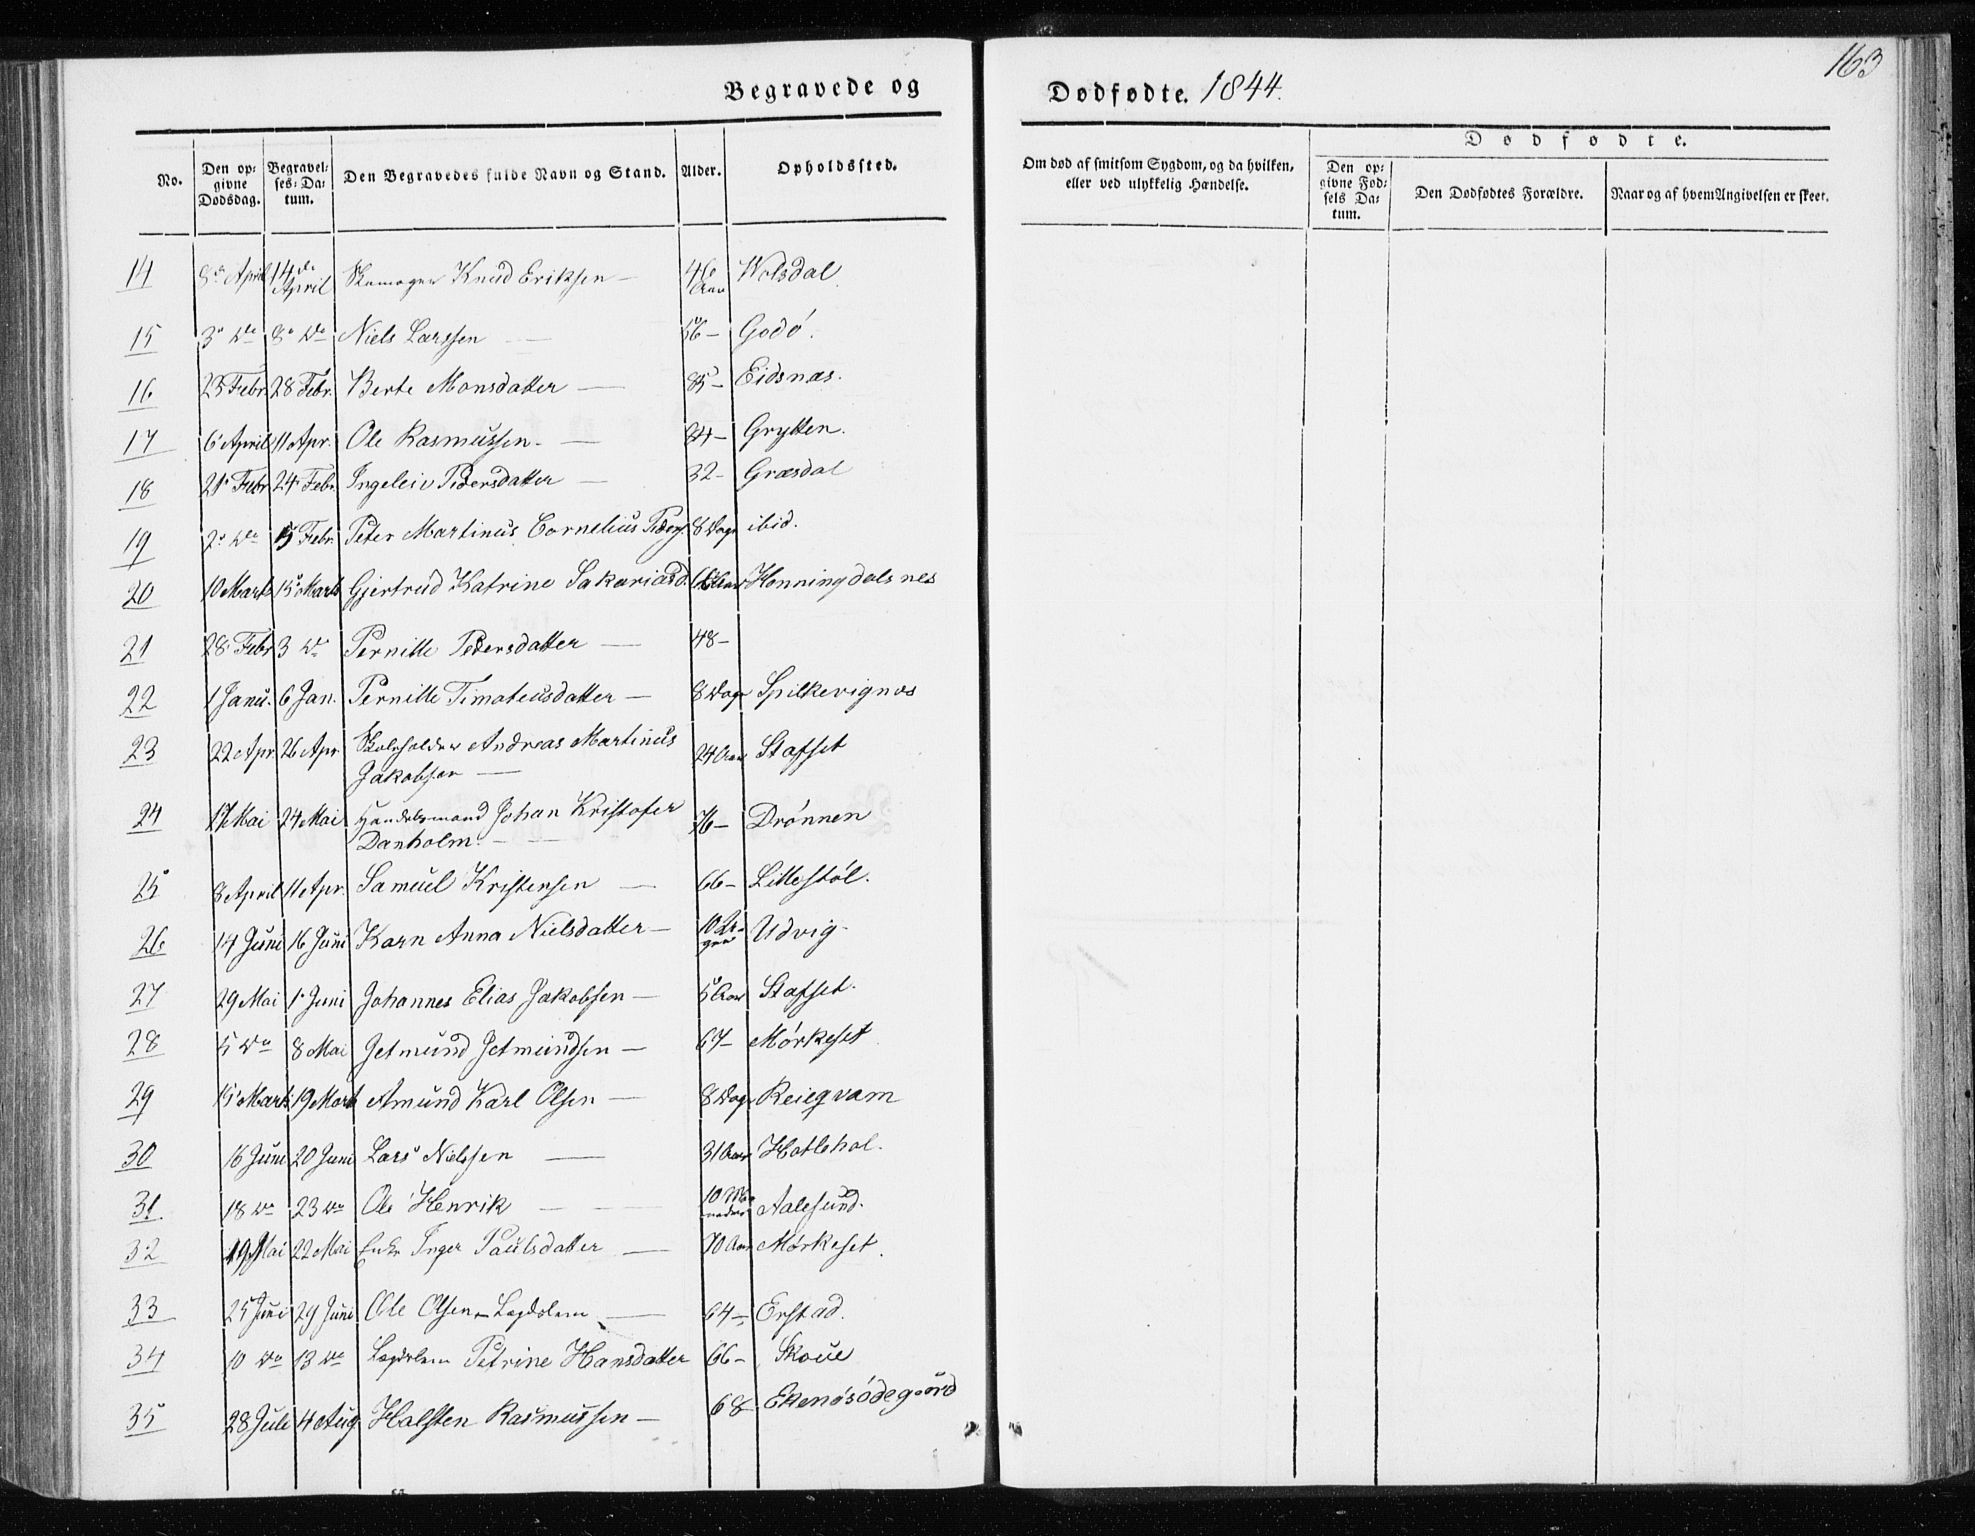 163
Begravede og Dødfødte. 1844.
No. Den opgivne Dødsdag. Begravelses-Datum. Den Begravedes fulde Navn og Stand. Alder. Opholdssted. Om død af smitsom Sygdom, og da hvilken, eller ved ulykkelig Hændelse. Dødfødte. Den opgivne Fødsels Datum. Den Dødfødtes Forældre. Naar og af hvem Angivelsen er skeet.
14 8de April 14de April Skomager Knud Eriksen — 46 Aar Wolsdal
15 3 do 8 do Niels Larssen — 56 – Godø.
16 23 Febr. 28 Febr. Berte Monsdatter — 85 – Eidsnæs.
17 6 April 11 Apr. Ole Rasmussen — 84 – Grytten.
18 21 Febr 24 Febr. Ingeleiv Pedersdatter — 32 – Græsdal
19 2 do 5 Febr. Peter Martinus Cornelius Peders. 8 Dage ibid.
20 10 Marts 15 Marts Gjertrud Katrine Sakariasd. Aar Honningdalsnes
21 28 Febr 3 do Pernille Pedersdatter — 48 –
22 1 Janu. 6 Jan. Pernille Timateusdatter — 8 Dage Spilkevignæs
23 22 Apr. 26 Apr. Skoleholder Andreas Martinus
Jakobsen — 24 Aar Stafset
24 17 Mai 24 Mai Handelsmand Johan Kristofer
Danholm. — 76 – Drønnen
25 8 April 11 Apr. Samuel Kristensen — 66 – Litlestøl.
26 14 Juni 16 Juni Karn Anna Nielsdatter — 10 Uger Udvig
27 29 Mai 1 Juni Johannes Elias Jakobsen — 5 Aar Stafset.
28 5 do 8 Mai Jetmund Jetmundsen — 67 – Mørkeset
29 15 Marts 19 Marts Amund Karl Olsen — 8 Dage Reiegvam
30 16 Juni 20 Juni Lars Nielssen — 31 Aar Hatlehol.
31. 18 do 23 do Ole Henrik — 10 Maaneder Aalesund.
32 19 Mai 22 Mai Enke Inger Paulsdatter — 70 Aar Mørkeset.
33 25 Juni 29 Juni Ole Olsen – Lægdslem — 64 – Erstad.
34 10 do 13 do Lægdslem Petrine Hansdatter 66 – Skoue
35 28 Juli 4 Aug Halsten Rasmussen — 68 Ekenøsødegaard